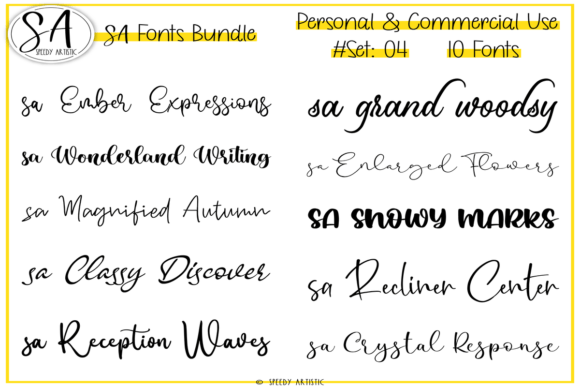 SA
SPEEDY ARTISTIC
SA Fonts Bundle
Personal & Commercial Use
#Set: 04 10 Fonts
sa Ember Expressions
sa Wonderland Writing
sa Magnified Autumn
sa Classy Discover
sa Reception Waves
sa grand woodsy
sa Enlarged Flowers
SA SNOWY MARKS
sa Recliner Center
sa Crystal Response
© SPEEDY ARTISTIC